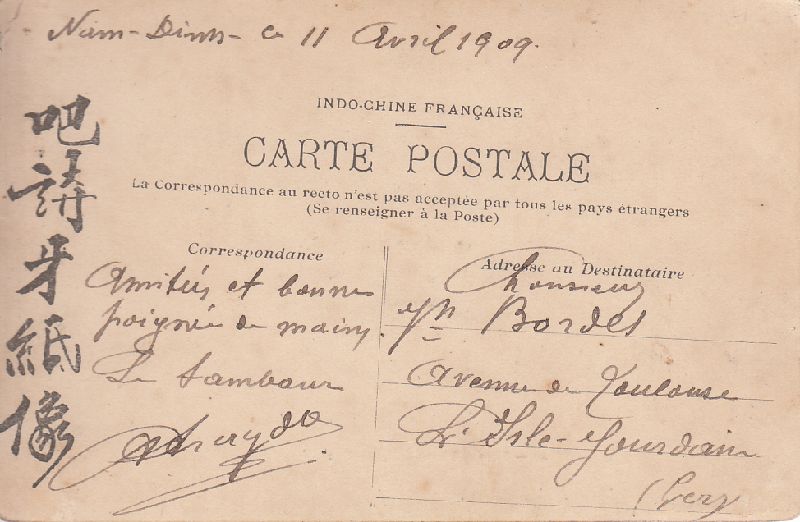 Nam-Dinh - le 11 Avril 1909.
INDO-CHINE FRANÇAISE
CARTE POSTALE
La Correspondance au recto n'est pas acceptée par tous les pays étrangers
(Se renseigner à la Poste)
吧請牙紙像
Correspondance
Amitiés et bonne
poignée de mains.
Le tambour
Adresse au Destinataire
Monsieur
Bordes
Avenue de Toulouse
L'Isle-Jourdain
(Gers